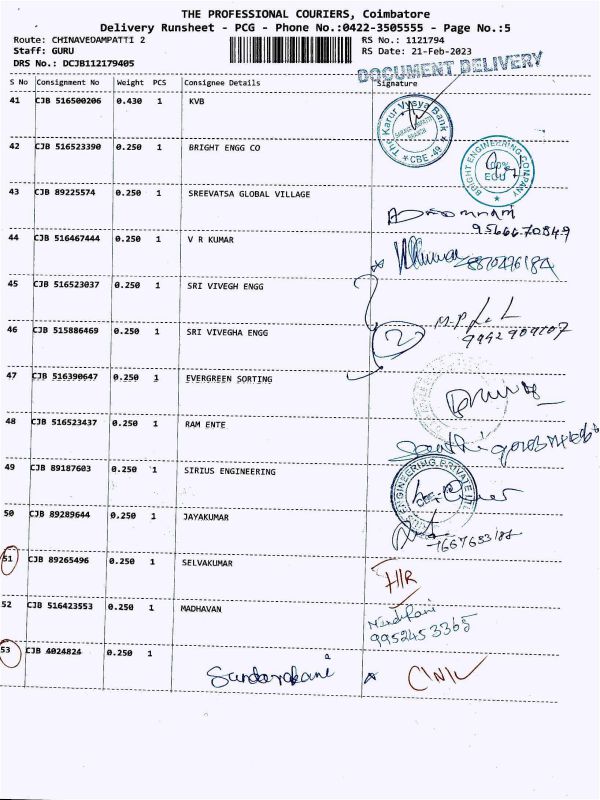 THE PROFESSIONAL COURIERS, Coimbatore
Delivery Runsheet - PCG - Phone No.:0422-3505555 - Page No.:5
Route: CHINAVEDAMPATTI 2
RS No.: 1121794
Staff: GURU
RS Date: 21-Feb-2023
DRS No.: DCJB112179405
DOCUMENT DELIVERY
S No Consignment No Weight PCS Consignee Details Signature
41 CJB 516500206 0.430 1 KVB
The Karur Vysya Bank
BRANCH
CBE-49
42 CJB 516523390 0.250 1 BRIGHT ENGG CO
BRIGHT ENGINEERING COMPANY
100%
EOU
43 CJB 89225574 0.250 1 SREEVATSA GLOBAL VILLAGE
44 CJB 516467444 0.250 1 V R KUMAR
45 CJB 516523037 0.250 1 SRI VIVEGH ENGG
46 CJB 515886469 0.250 1 SRI VIVEGHA ENGG
2
M.P.
47 CJB 516390647 0.250 1 EVERGREEN SORTING
48 CJB 516523437 0.250 1 RAM ENTE
49 CJB 89187603 0.250 1 SIRIUS ENGINEERING
ENGINEERING PRIVATE
50 CJB 89289644 0.250 1 JAYAKUMAR
51 CJB 89265496 0.250 1 SELVAKUMAR
52 CJB 516423553 0.250 1 MADHAVAN
9952453365
53 CJB 4024824 0.250 1
a